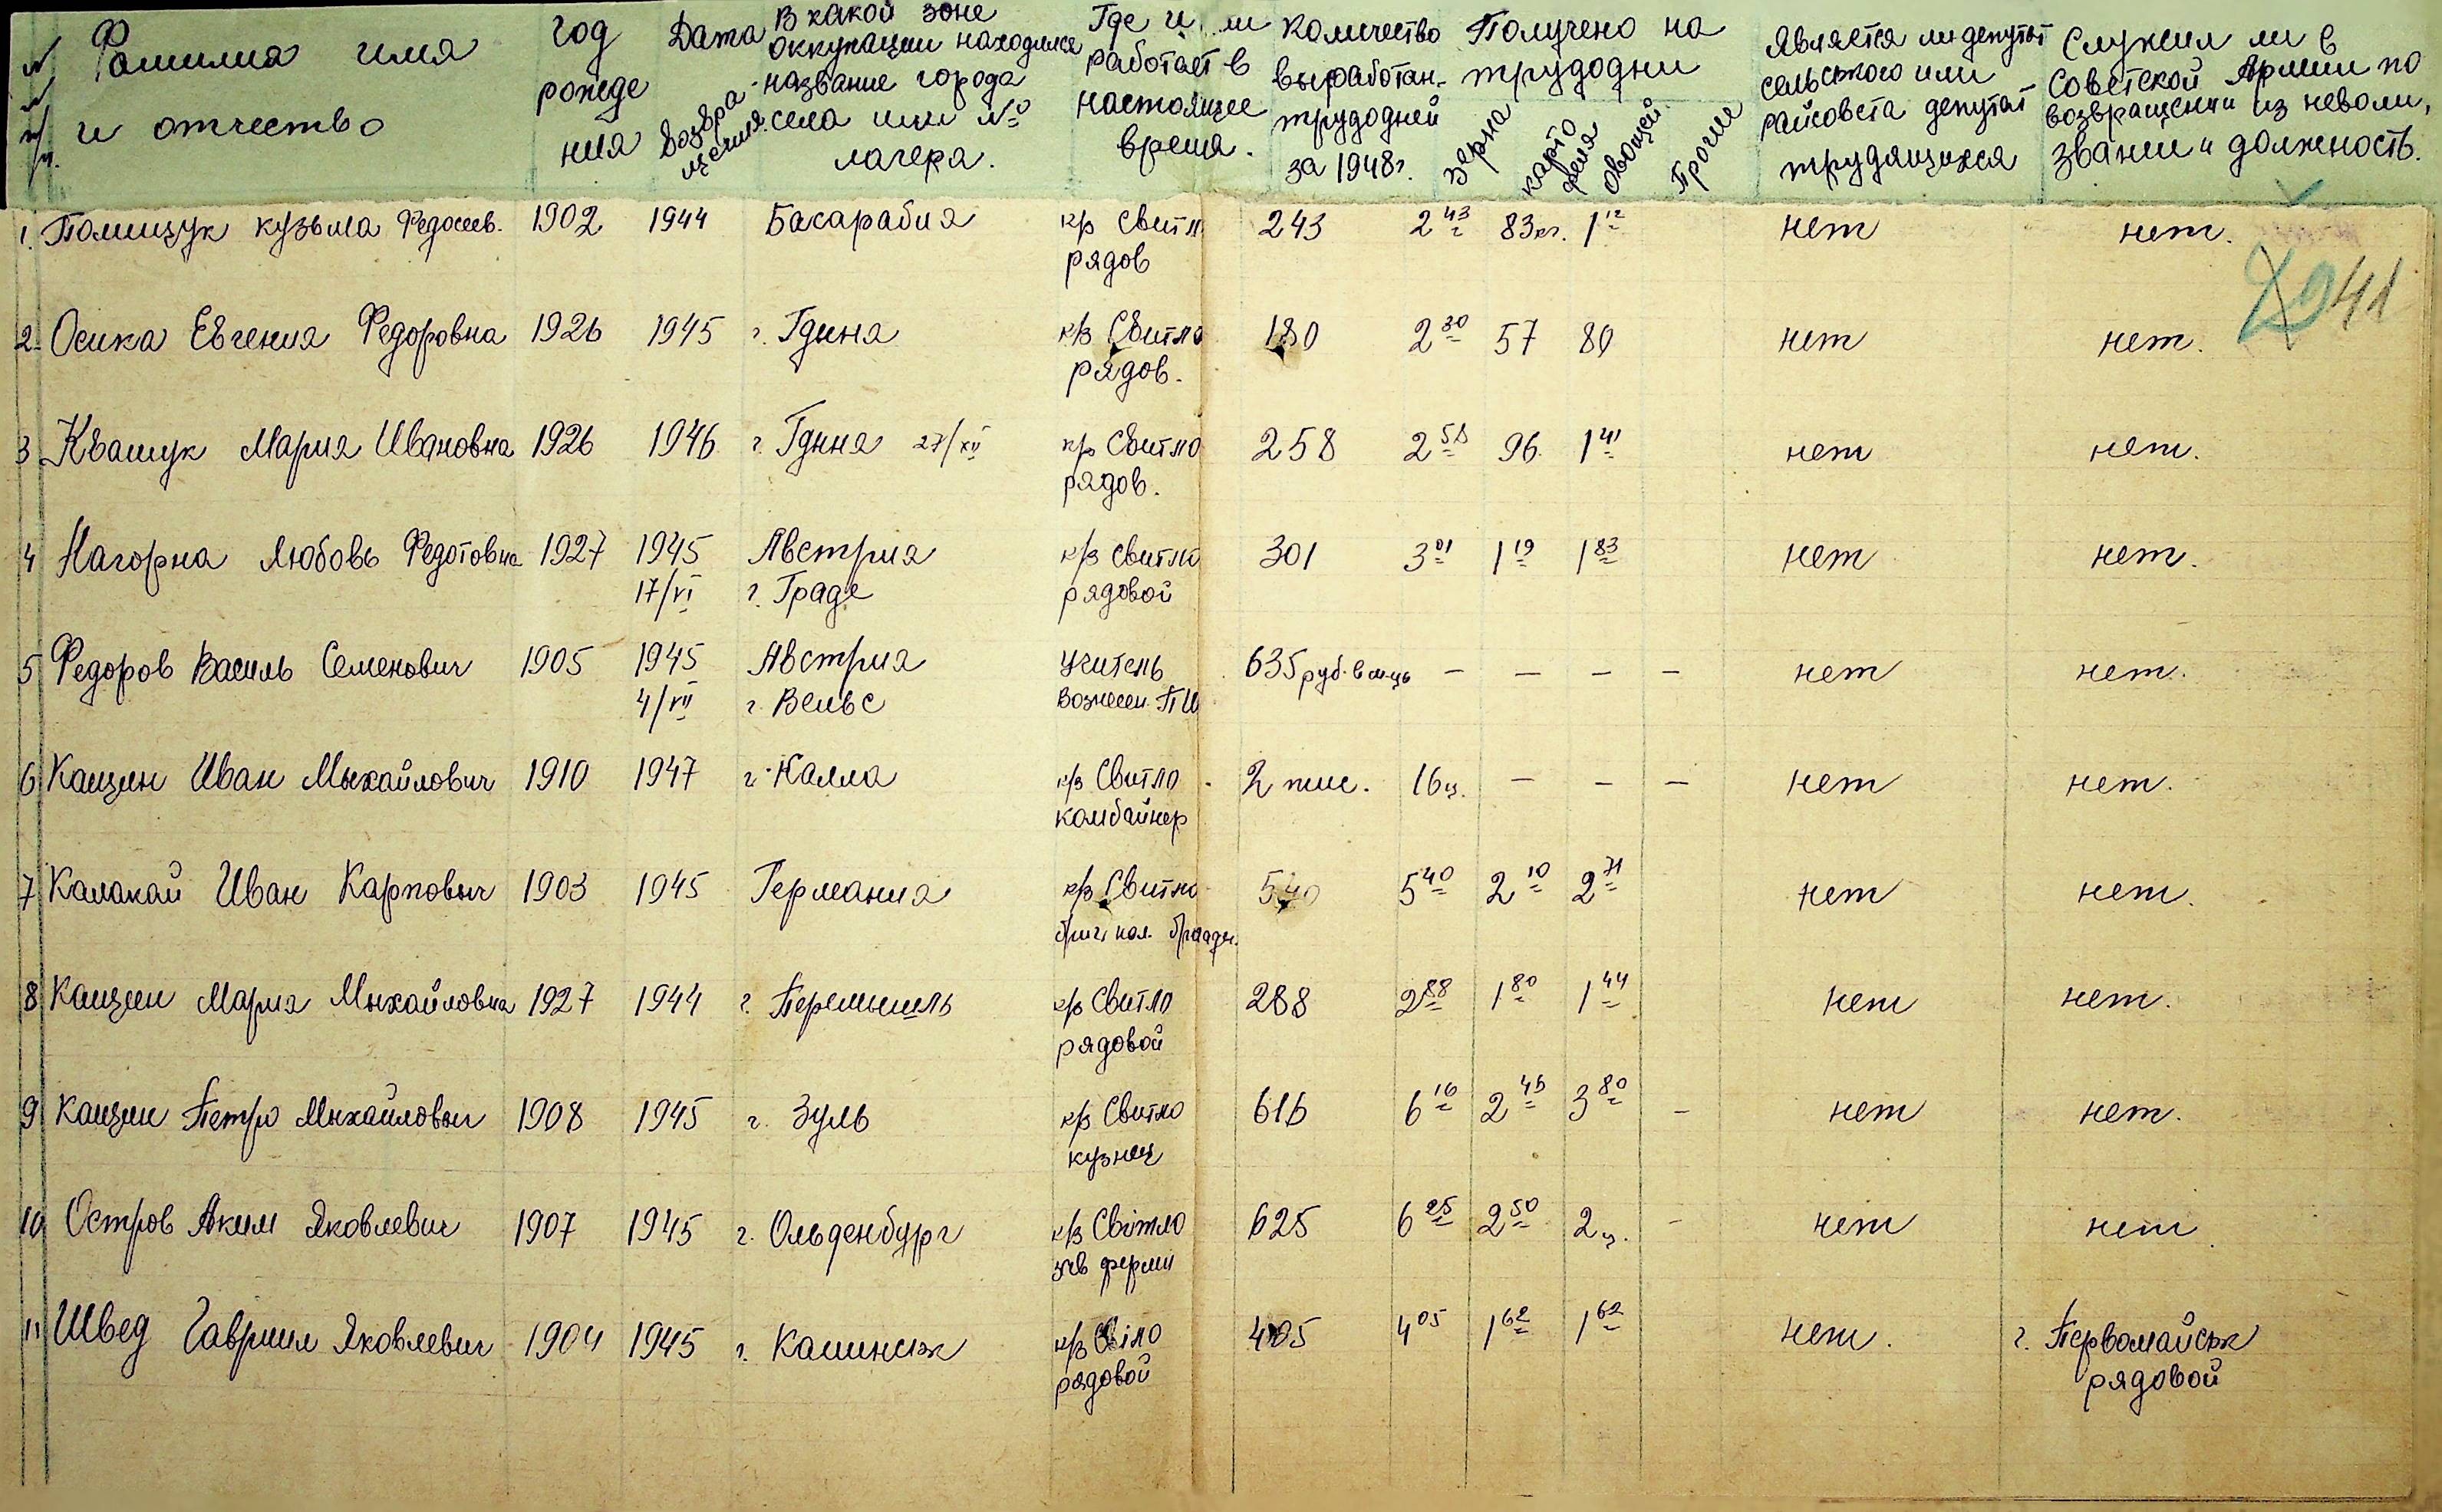 № Фамилия имя и отчество Год рождения Дата возвращения В какой зоне оккупации находился название города села или № лагеря. Где и работает в настоящее время. Количество выработан. трудодней за 1948г. Получено на трудодни зерна картофеля овощей Прочие Является ли депутат сельського или райсовета депутат трудящихся Служил ли в Советской Армии по возвращении из неволи, звание и должность.
1. Полищук кузьма Федосеев. 1902 1944 Басарабия к/з Свитл 243 2 43 83кг. 1 12 нет нет.
рядов
941
2. Осика Евгения Федоровна 1926 1945 г. Гдина к/з Свитло 180 2 30 57 80 нет нет.
рядов.
3 Квашук Мария Ивановна 1926 1946 г. Гдина 27/XII к/з Свитло 258 2 58 96 1 41 нет нет.
рядов.
4 Нагорна Любовь Федотовна 1927 1945 Австрия к/з Свитло 301 3 01 1 19 1 83 нет нет.
17/VI г. Граде рядовой
5 Федоров Василь Семенович 1905 1945 Австрия учитель 635 руб. в м-ць — — — — нет нет.
4/VII г. Вельс Вознесен.
6 Кащин Иван Мыхайлович 1910 1947 г. Калла к/з Свитло 2 тис. 16ц. — — — нет нет.
комбайнер
7 Калакай Иван Карпович 1903 1945 Германия к/з Свитло 540 5 40 2 10 2 71 нет нет.
пол.
8 Кащин Мария Мыхайловна 1927 1944 г. Перемышль к/з Свитло 288 2 88 1 80 1 44 нет нет.
рядовой
9 Кащин Петро Мыхайлович 1908 1945 г. Зуль к/з Свитло 616 6 16 2 45 3 80 — нет нет.
кузнец
10 Остров Аким Яковлевич 1907 1945 г. Ольденбург к/з Світло 625 6 25 2 50 2ц. — нет нет
зав ферми
11 Швед Гавриил Яковлевич 1904 1945 г. Каминськ к/з 405 4 05 1 62 1 62 нет. г. Первомайськ
рядовой рядовой